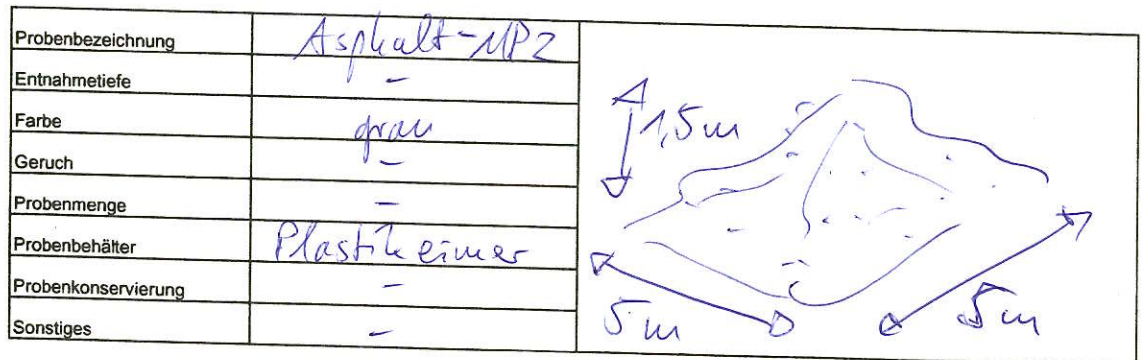 Probenbezeichnung Asphalt-MP2
Entnahmetiefe -
Farbe grau
Geruch -
Probenmenge -
Probenbehälter Plastikeimer
Probenkonservierung -
Sonstiges -
1,5m
5m
5m